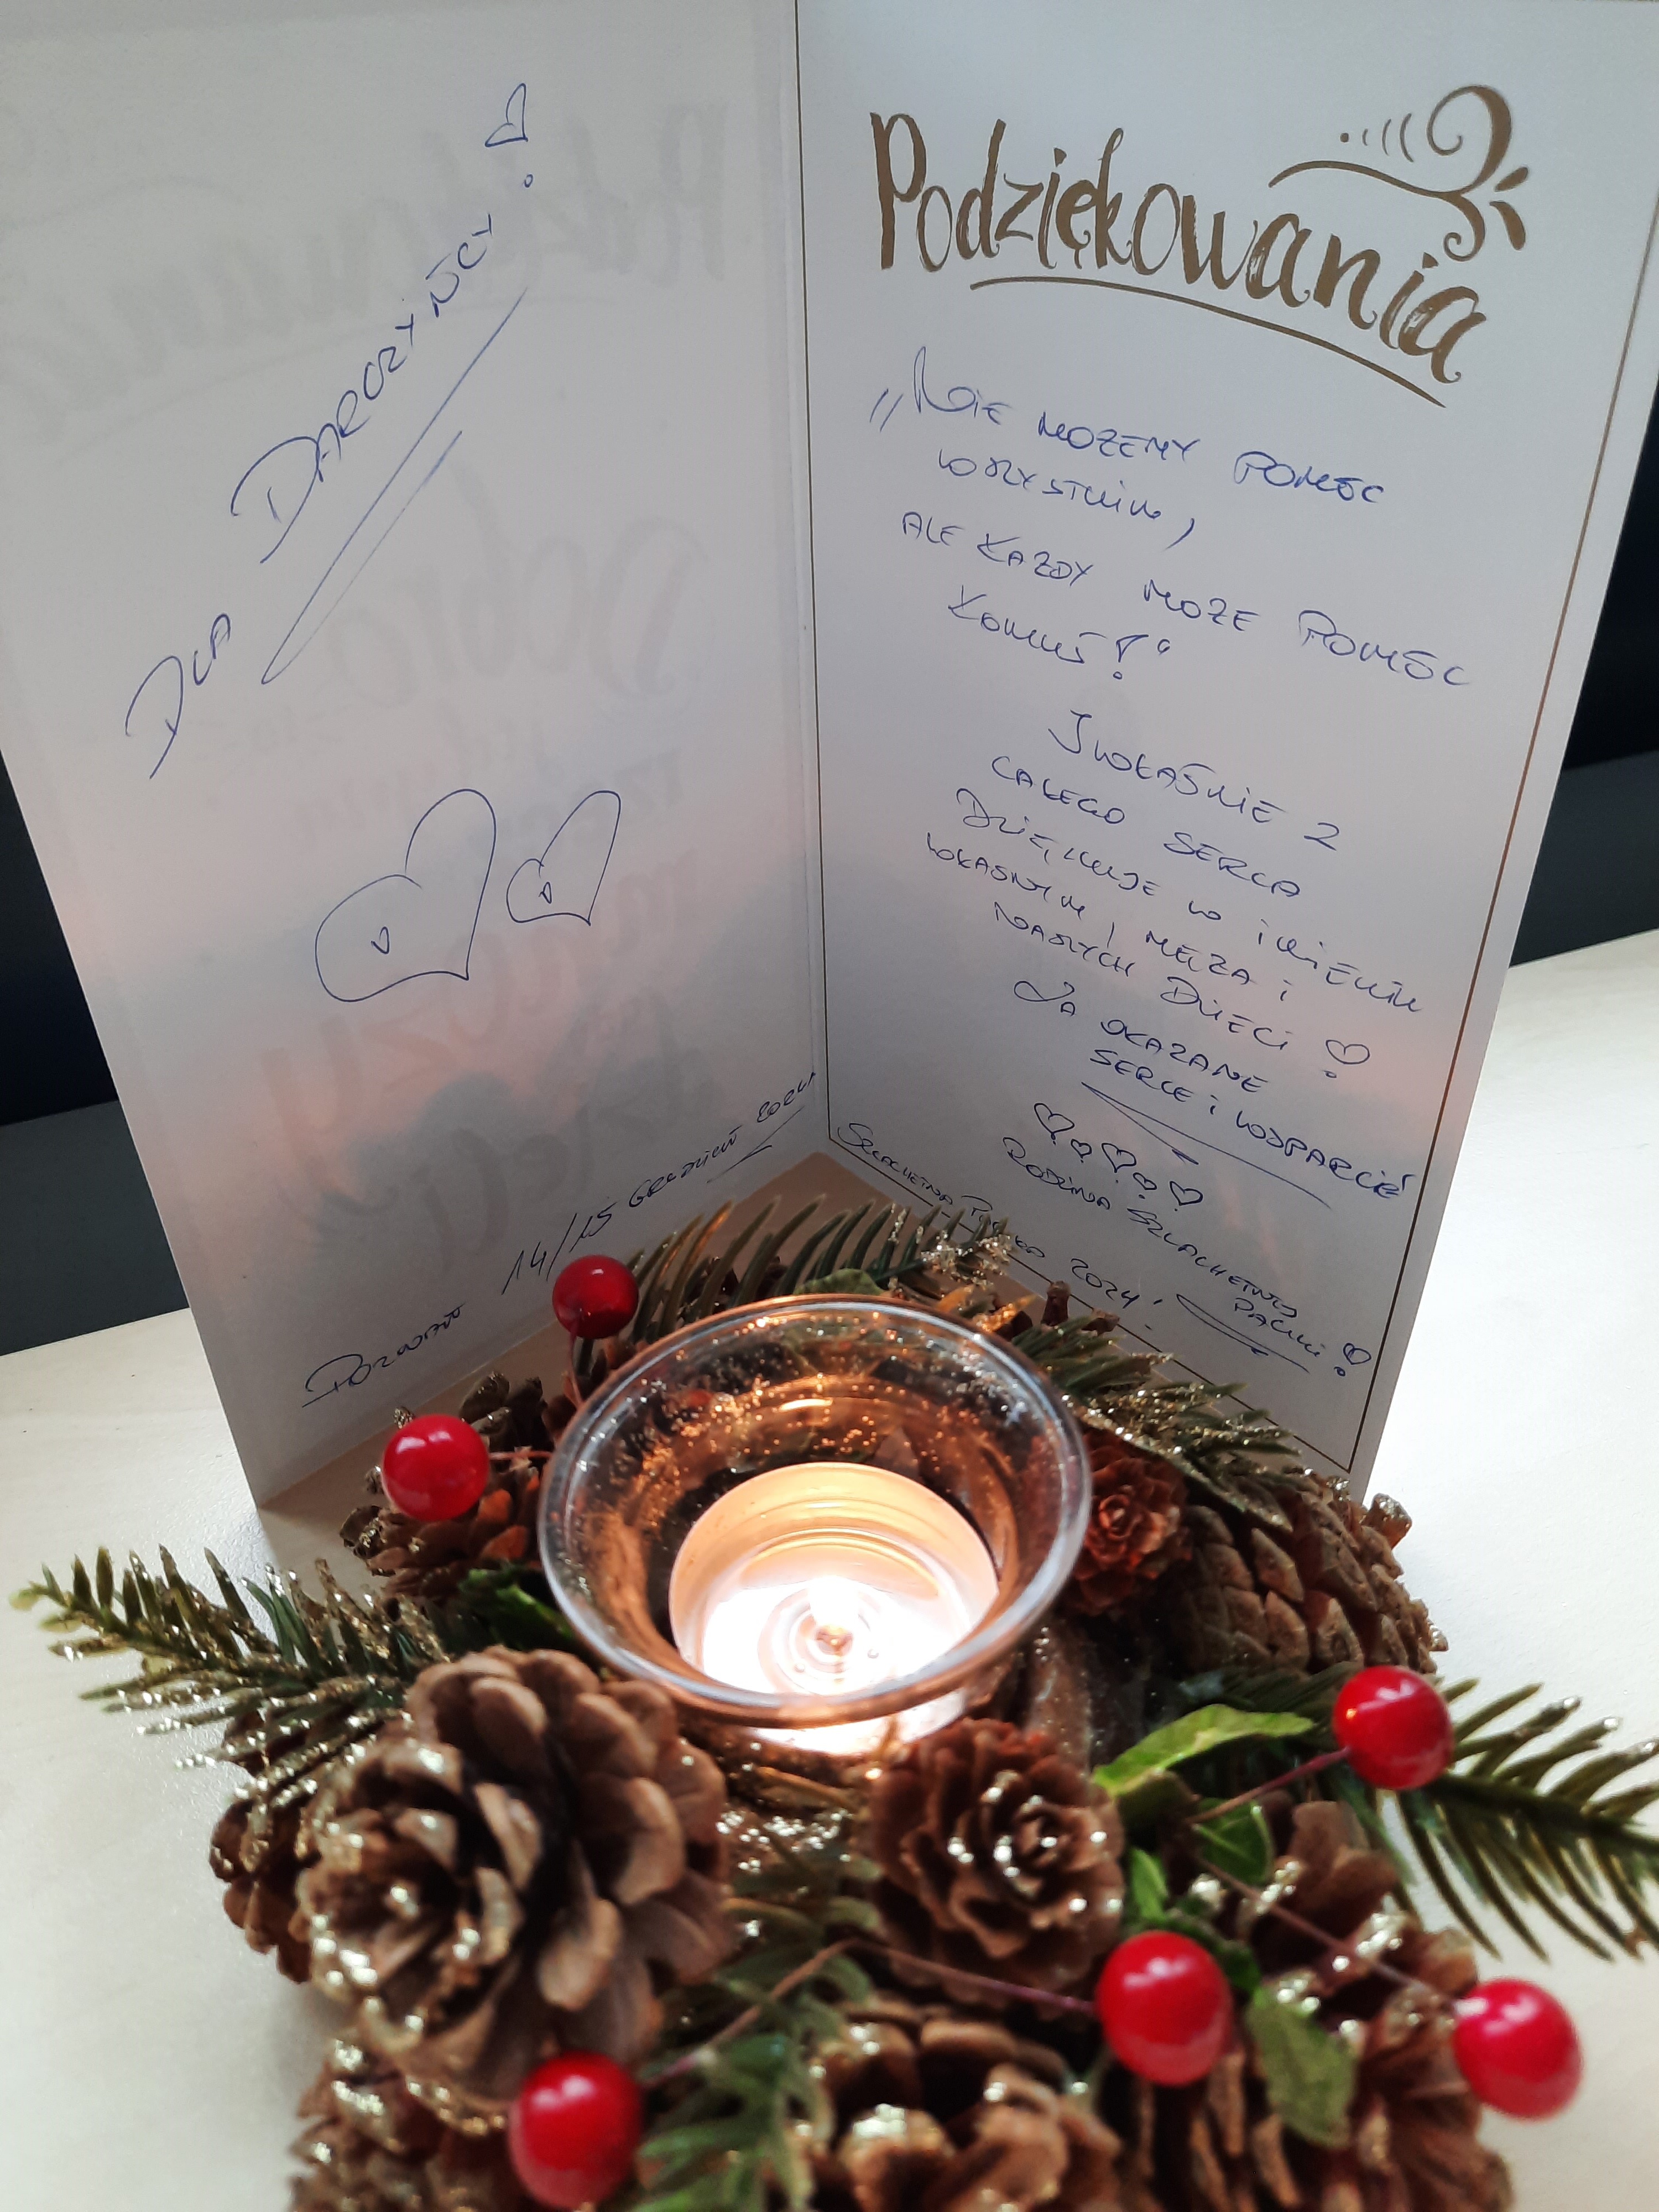 DLA DAROZYŃCY!
POZNAŃ 14/15 GRUDZIEŃ 2024
Podziękowania
„Nie możemy pomóc
wszystkim,
ale każdy może pomóc
komuś!"
I właśnie z
całego serca
dziękuję w imieniu
własnym, męża i
naszych dzieci!
Za okazane
serce i wsparcie
Rodzina Szlachetnej
Paczki!
Szlachetna Paczka 2024!